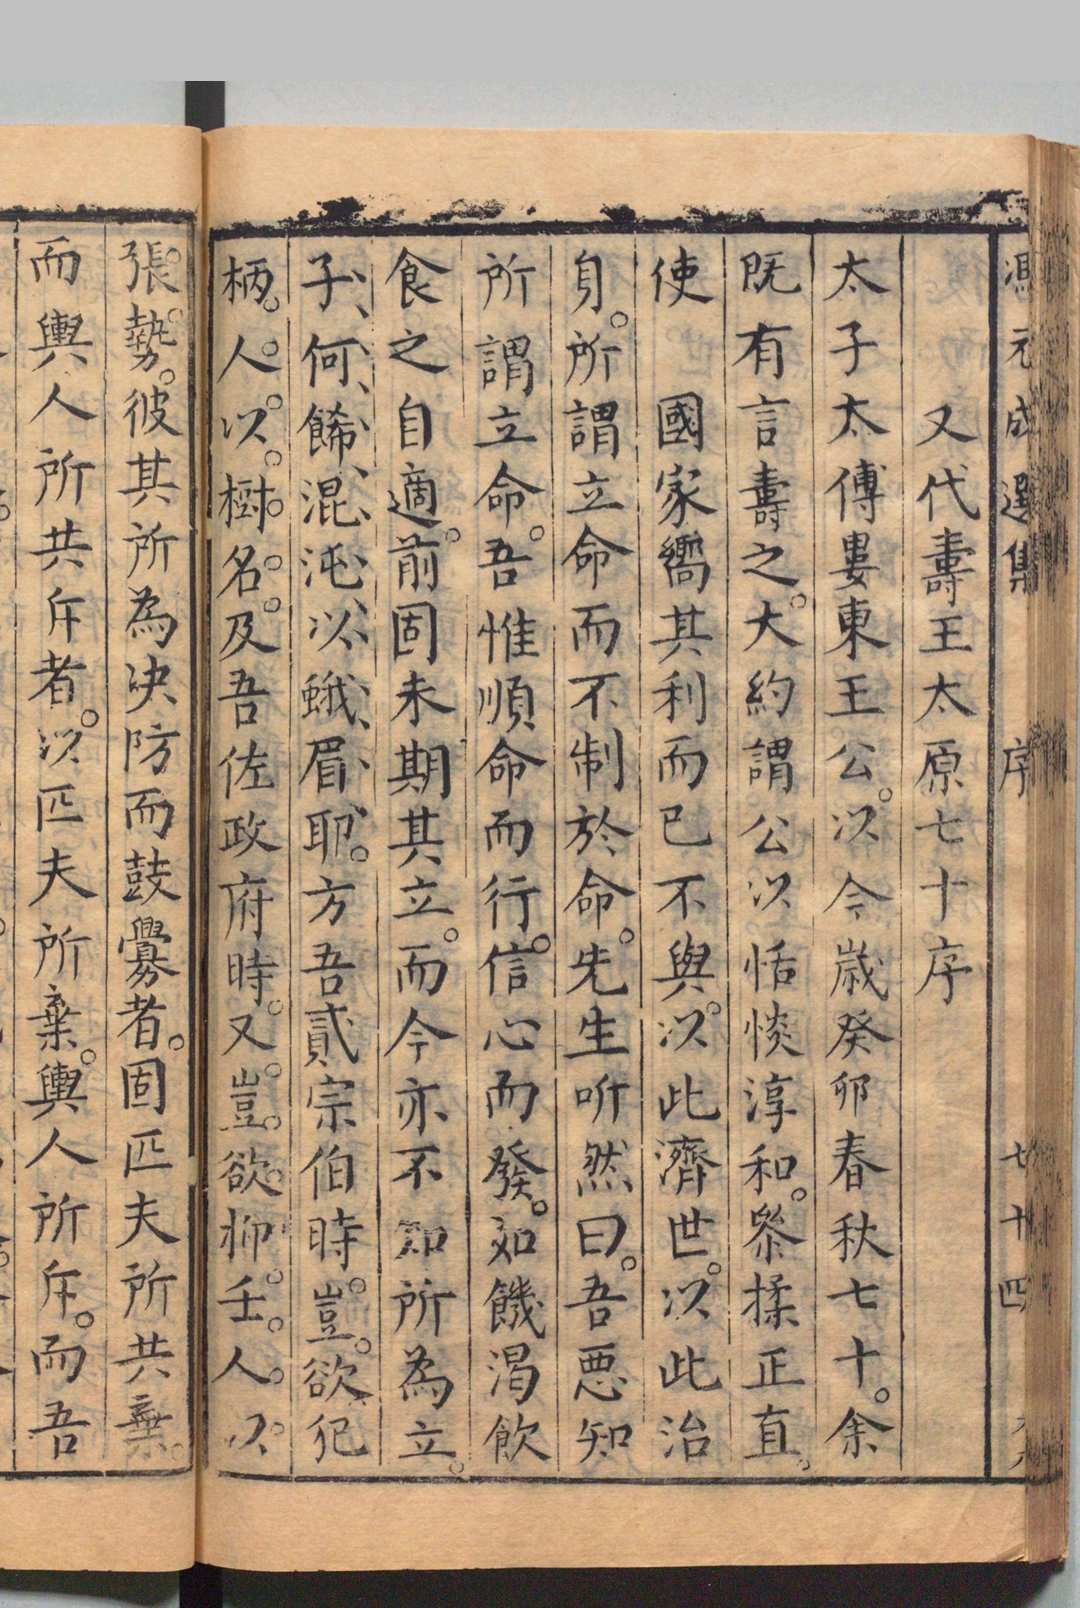 馮元成選集 序 七十四
又代壽王太原七十序
太子太傅婁東王公以今歲癸卯春秋七十余
既有言壽之大約謂公以恬惔淳和叅揉正直
使 國家嚮其利而已不與以此濟世以此治
身所謂立命而不制於命先生听然曰吾惡知
所謂立命吾惟順命而行信心而發如饑渴飲
食之自適前固未期其立而今亦不知所為立
子何餙混沌以蛾眉耶方吾貳宗伯時豈欲犯
柄人以樹名及吾佐政府時又豈欲抑壬人以
張勢彼其所為决防而鼓釁者固匹夫所共棄
而輿人所共斥者以匹夫所棄輿人所斥而吾